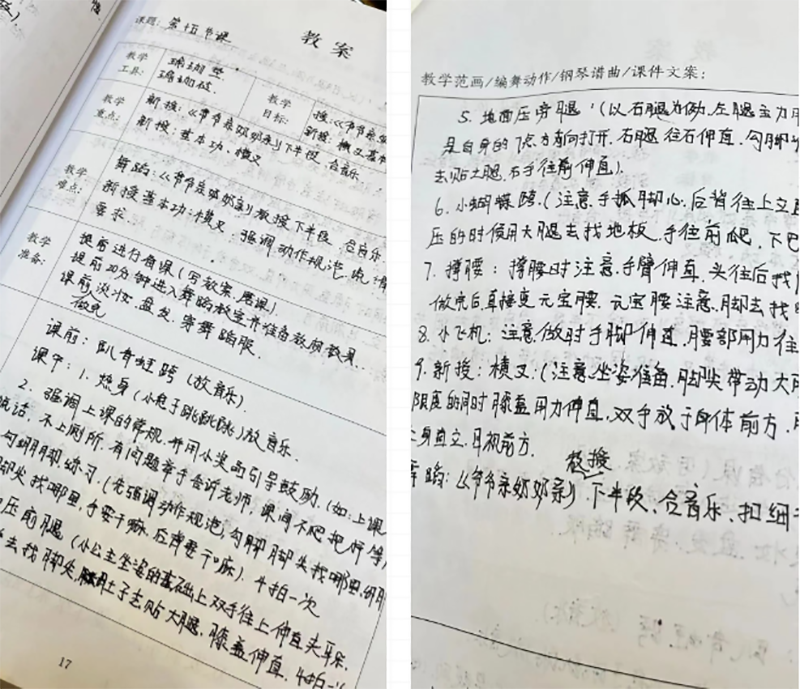 教案
课题: 第十五节课
教学
工具:
瑜珈垫
瑜珈砖
教学
目标:
教学
重点:
新授:《爷爷亲奶奶亲》下半段 合音乐
新授: 基本功、横叉
教学
难点:
舞蹈:《爷爷亲奶奶亲》教授下半段 合音乐
新授基本功: 横叉: 强调动作规范
要求.
教学
准备:
提前进行备课 (写教案、愿课)
提前20分钟进入舞蹈教室并准备教损教具
课前淡妆、盘发、穿舞蹈服.
做完
课前: 趴青蛙跨 (放音乐)
课中: 1. 热身 (小兔子跳跳跳) 放音乐.
2. 强调上课的常规, 并用小奖品引导鼓励. (如: 上课
说话, 不上厕所, 有问题举手告诉老师, 课间不爬把杆等
勾绷脚练习. (先强调动作规范, 勾脚脚尖找哪里, 绷脚
脚尖找哪里, 手要干嘛, 后背要干嘛). 4拍一次
压前腿 (小公主坐姿的基础上双手往上伸直夹耳朵.
去找脚尖, 肚子去贴大腿, 膝盖伸直. 4拍一
17
教学范画/编舞动作/钢琴谱曲/课件文案:
5. 地面压旁腿 (以右腿为例, 左腿
是自身的7点方向打开. 右腿往右伸直, 勾脚
去贴大腿, 右手往前伸直).
6. 小蝴蝶跨. (注意: 手抓脚心, 后背往上立直
压的时候用大腿去找地板, 手往前爬, 下巴
7. 撑腰: 撑腰时注意: 手臂伸直, 头往后找
做完后直接变元宝腰, 元宝腰注意: 脚去找
8. 小飞机: 注意: 做时手脚伸直, 腰部用力往
9. 新授: 横叉. (注意: 坐姿准备, 脚尖带动大
限度的同时膝盖用力伸直, 双手放于身体前方,
上身直立, 目视前方.
教授
舞蹈:《爷爷亲奶奶亲》下半段、合音乐、扣细